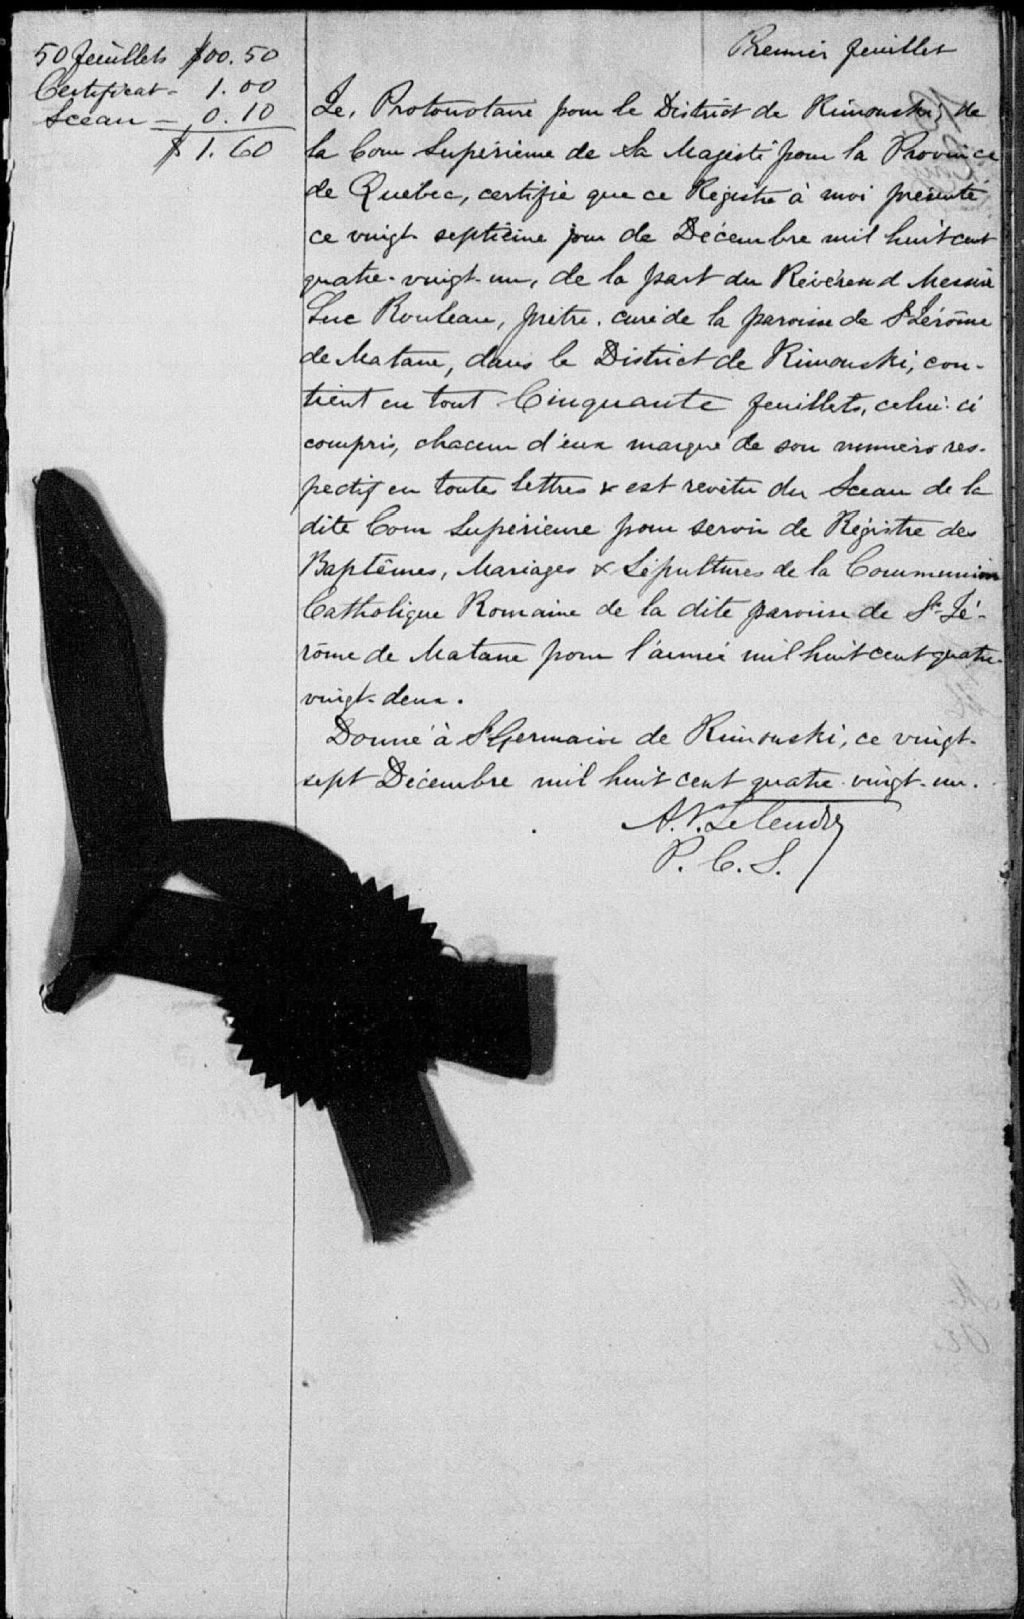 50 feuillets $00.50
Certificat - 1.00
Sceau - 0.10
$1.60
Premier feuillet
Je, Protonotaire pour le District de Rimouski, de
la Cour Supérieure de Sa Majesté pour la Province
de Québec, certifie que ce Régistre à moi présenté
ce vingt septième jour de Décembre mil huit cent
quatre-vingt-un, de la part du Révérend Messire
Luc Rouleau, prêtre, curé de la paroisse de St Jérôme
de Matane, dans le District de Rimouski, con-
tient en tout Cinquante feuillets, celui-ci
compris, chacun d'eux marqué de son numéro res-
pectif en toutes lettres & est revêtu du Sceau de la
dite Cour Supérieure pour servir de Régistre des
Baptêmes, Mariages & Sépultures de la Communion
Catholique Romaine de la dite paroisse de St Jé-
rôme de Matane pour l'année mil huit cent quatre-
vingt-deux.
Donné à St Germain de Rimouski, ce vingt-
sept Décembre mil huit cent quatre-vingt-un.
P. C. S.